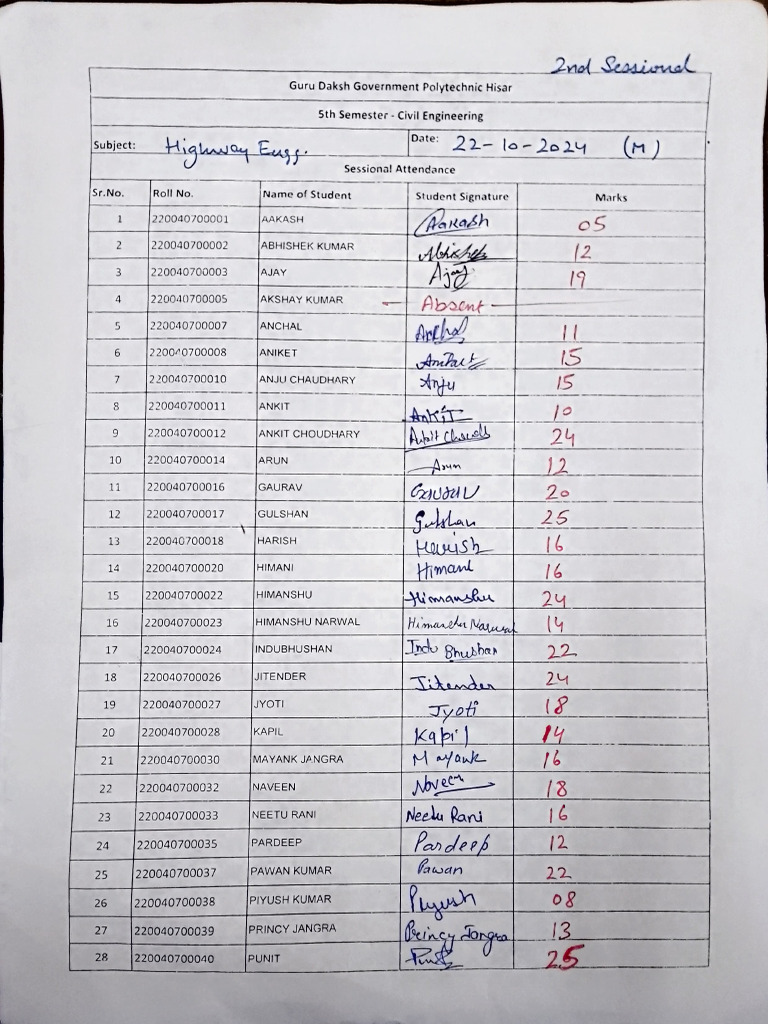 2nd Sessional
Guru Daksh Government Polytechnic Hisar
5th Semester - Civil Engineering
Subject: Highway Engg. Date: 22-10-2024 (M)
Sessional Attendance
Sr.No. Roll No. Name of Student Student Signature Marks
1 220040700001 AAKASH Aakash 05
2 220040700002 ABHISHEK KUMAR Abhishek 12
3 220040700003 AJAY Ajay 19
4 220040700005 AKSHAY KUMAR - Absent -
5 220040700007 ANCHAL Anchal 11
6 220040700008 ANIKET Aniket 15
7 220040700010 ANJU CHAUDHARY Anju 15
8 220040700011 ANKIT ANKIT 10
9 220040700012 ANKIT CHOUDHARY Ankit 24
10 220040700014 ARUN Arun 12
11 220040700016 GAURAV Gaurav 20
12 220040700017 GULSHAN Gulshan 25
13 220040700018 HARISH Harish 16
14 220040700020 HIMANI Himani 16
15 220040700022 HIMANSHU Himanshu 24
16 220040700023 HIMANSHU NARWAL Himanshu Narwal 14
17 220040700024 INDUBHUSHAN Indu Bhushan 22
18 220040700026 JITENDER Jitender 24
19 220040700027 JYOTI Jyoti 18
20 220040700028 KAPIL Kapil 14
21 220040700030 MAYANK JANGRA Mayank 16
22 220040700032 NAVEEN Naveen 18
23 220040700033 NEETU RANI Neetu Rani 16
24 220040700035 PARDEEP Pardeep 12
25 220040700037 PAWAN KUMAR Pawan 22
26 220040700038 PIYUSH KUMAR Piyush 08
27 220040700039 PRINCY JANGRA Princy Jangra 13
28 220040700040 PUNIT Punit 25